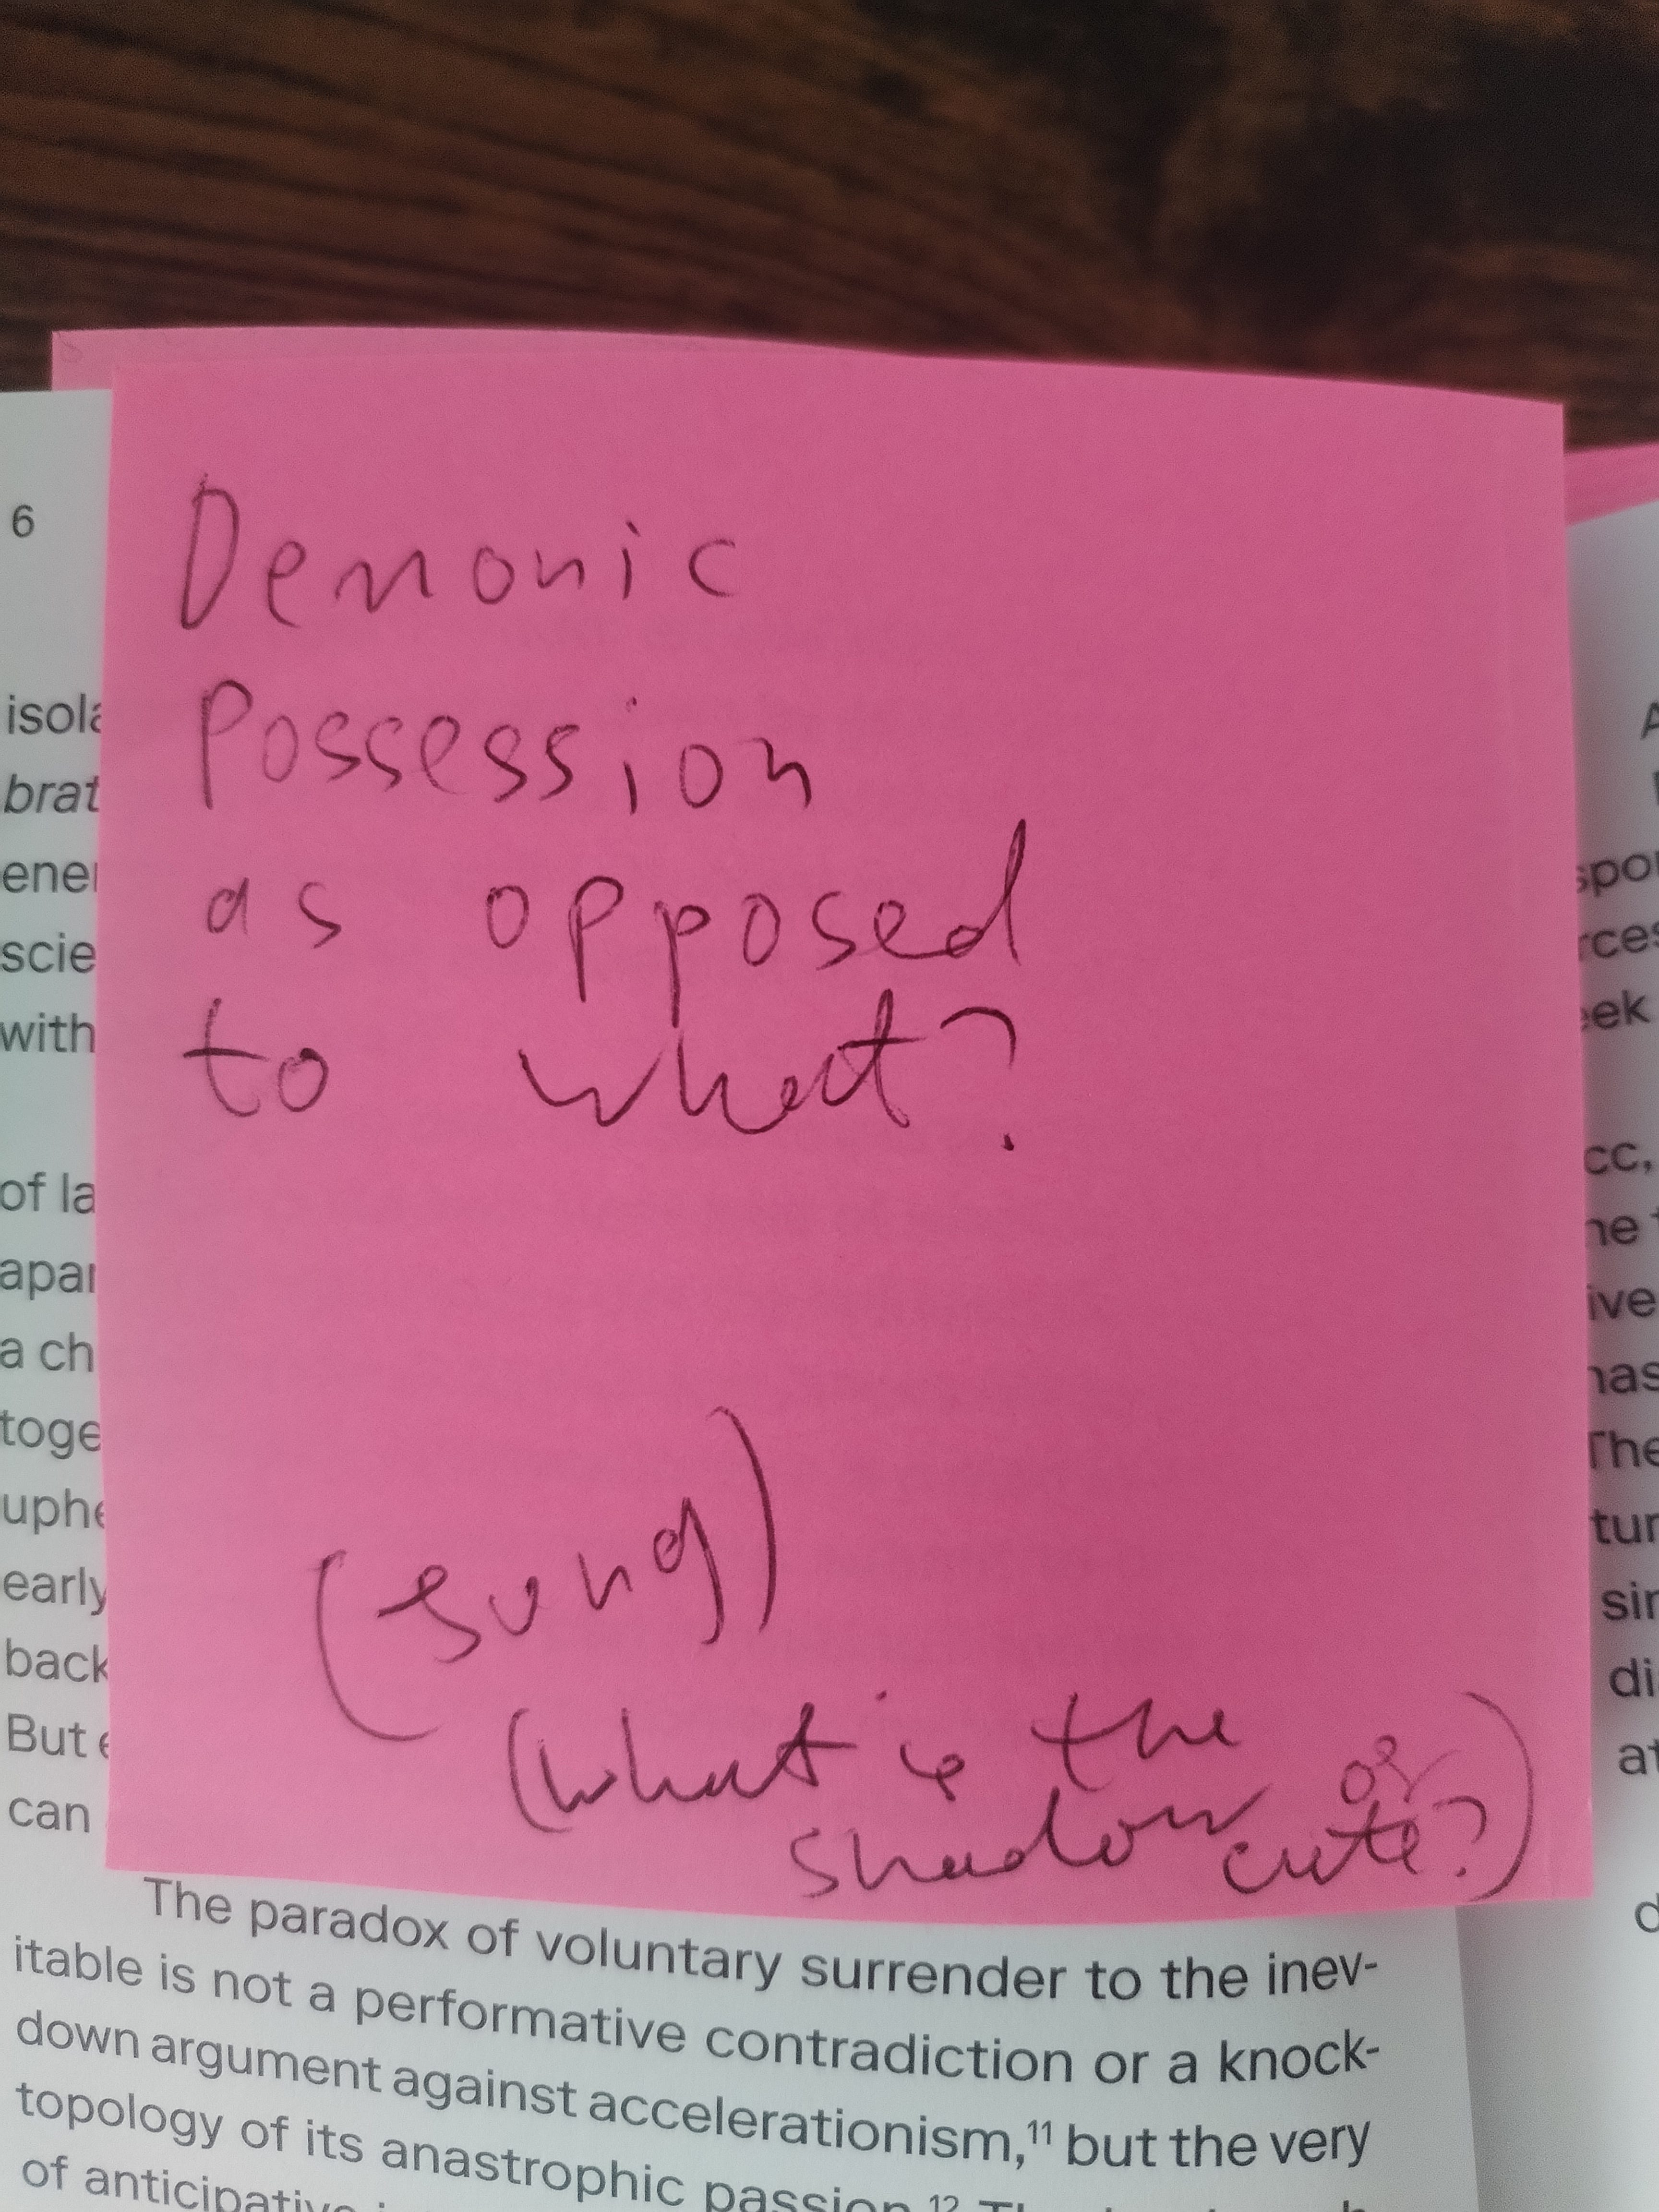 6
Demonic
Possession
as opposed
to what?
isola
brat
ene
scie
with
of la
apar
a ch
toge
uphe
early
back
But e
can
(sung)
(what is the
shadow of
cute?)
The paradox of voluntary surrender to the inev-
itable is not a performative contradiction or a knock-
down argument against accelerationism,¹¹ but the very
topology of its anastrophic passion.¹²
of anticipative
spo
rces
eek
cc,
he
ive
has
The
tur
sin
di
at
d